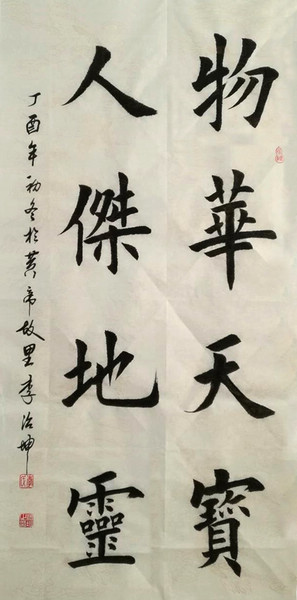 物華天寶
人傑地靈
丁酉年初冬於黃帝故里李治坤